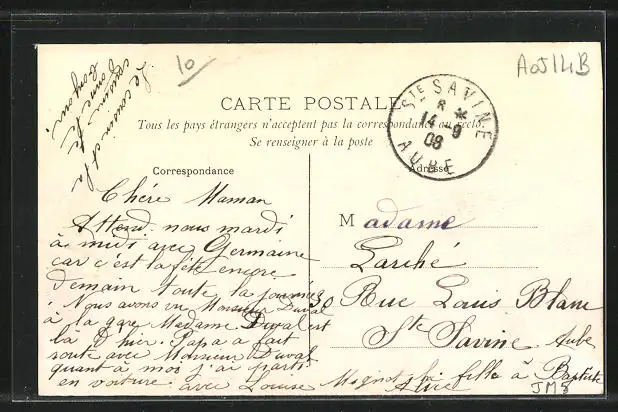 10
AoJ14B
CARTE POSTALE
Tous les pays étrangers n'acceptent pas la correspondance au recto.
Se renseigner à la poste
STE SAVINE
8 *
14 -9
08
AUBE
Correspondance
Adresse
Le cousin et la
cousine
Chére Maman
Attend. nous mardi
à midi avec Germaine
car c'est la fête encore
demain toute la journée
Nous avons vu Monsieur Duval
à la gare Madame Duval est
là d'hier. Papa a fait
route avec Monsieur Duval
quant à moi j'ai parti
en voiture avec Louise Mognot la fille à Baptiste
Alice
Madame
Larché
30 Rue Louis Blanc
Ste Savine. Aube
JM8